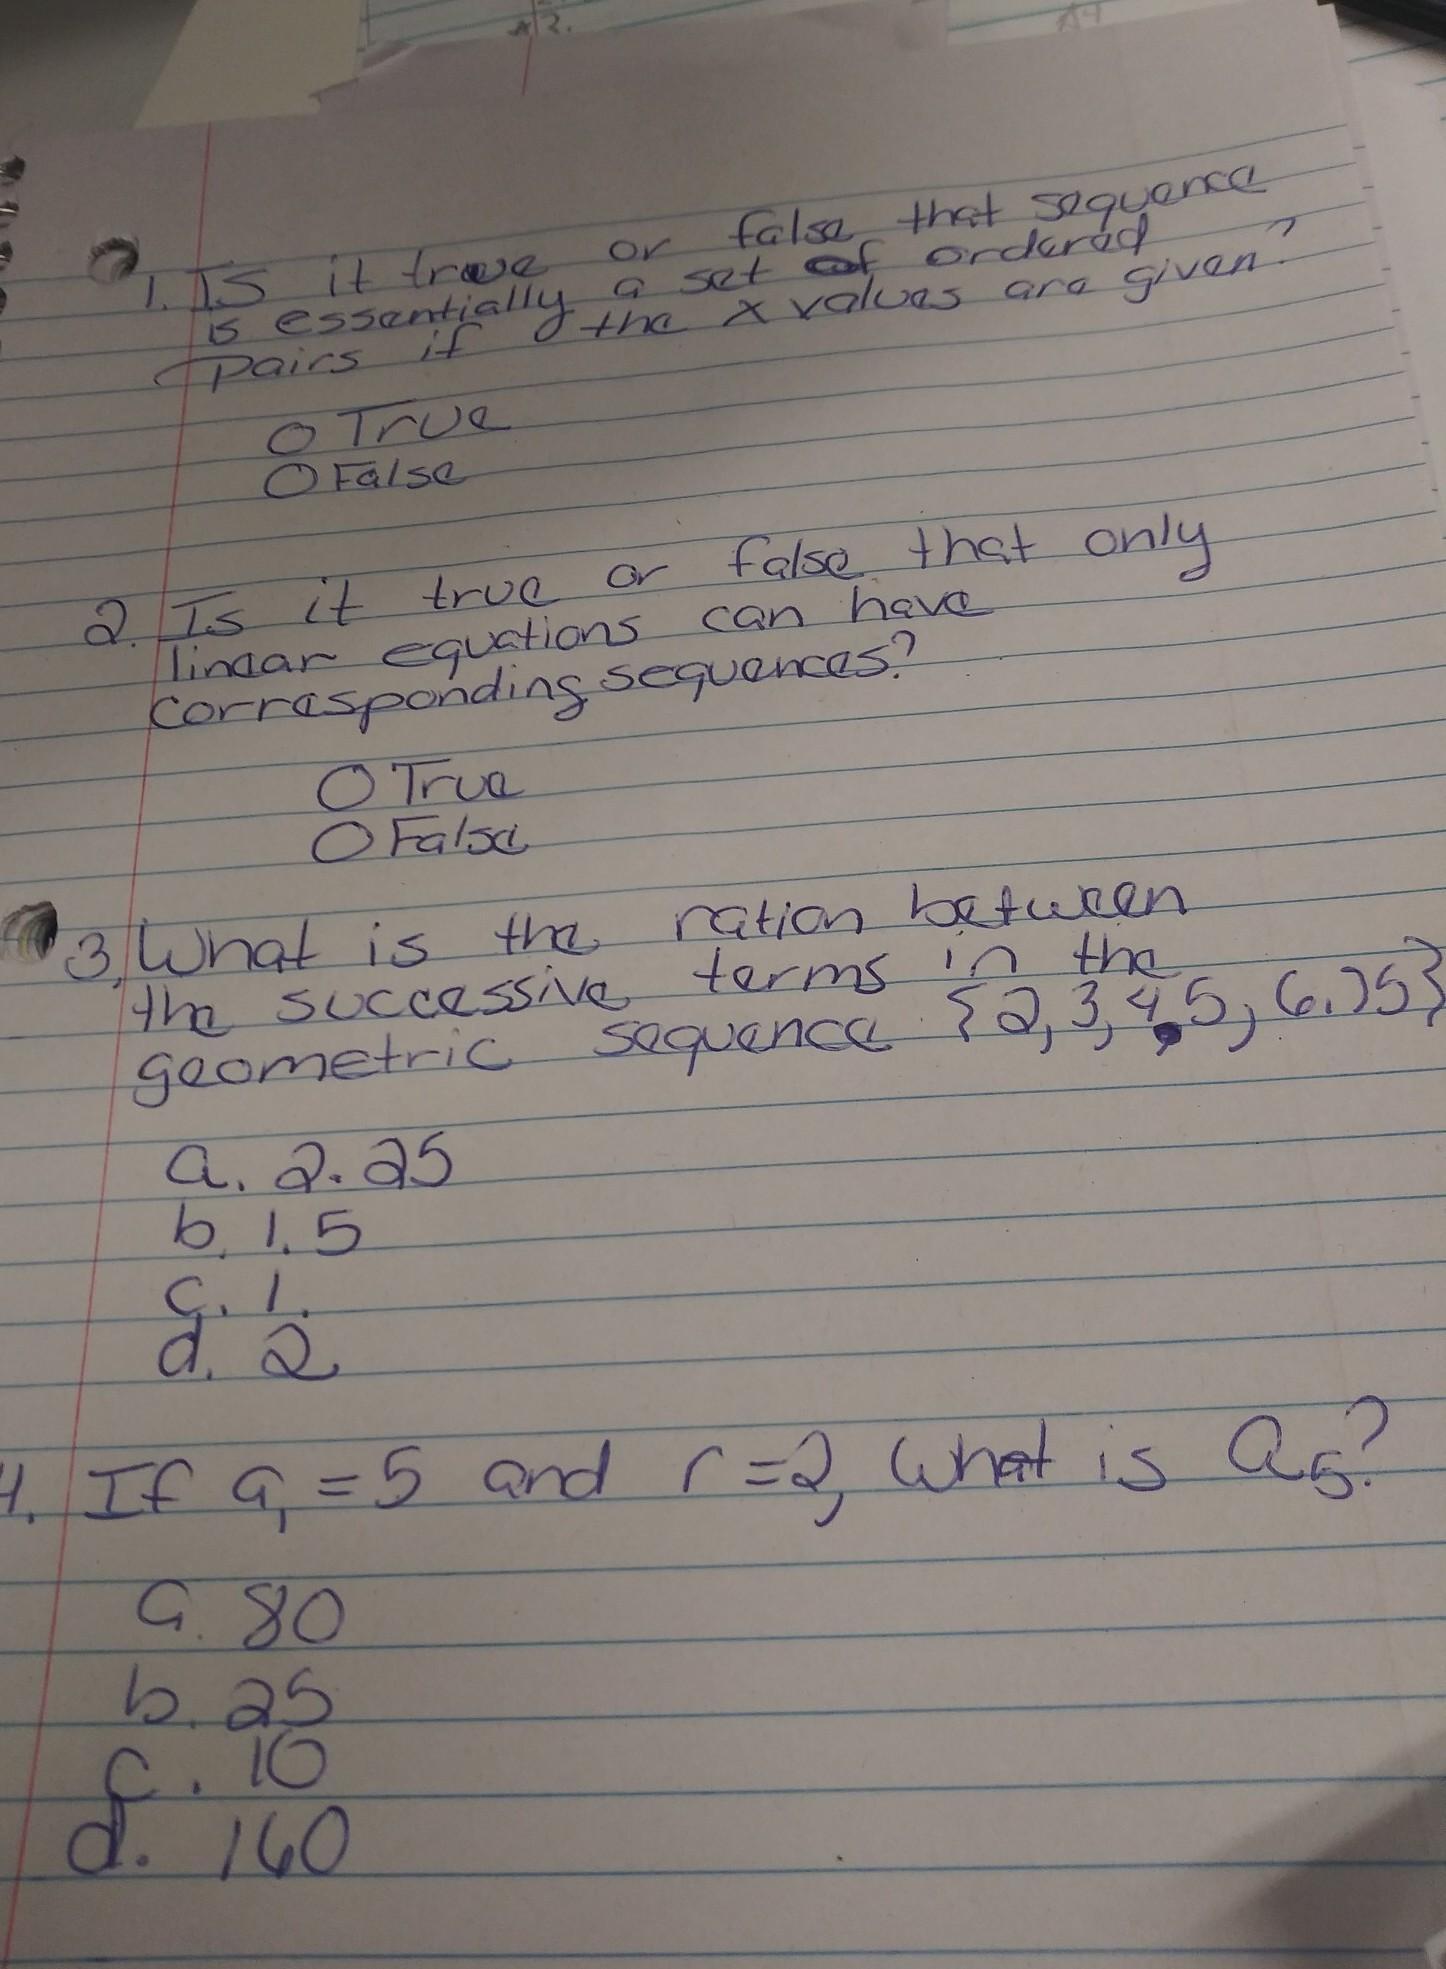 1. Is it true or false that sequence
is essentially a set of ordered
pairs if the x values are given?
True
False
2. Is it true or false that only
linear equations can have
corresponding sequences?
True
False
3. What is the ration between
the successive terms in the
geometric sequence {2, 3, 4.5, 6.75}
a. 2.25
b. 1.5
c. 1.
d. 2
4. If a₁ = 5 and r = 2, what is a₅?
a. 80
b. 25
c. 10
d. 160